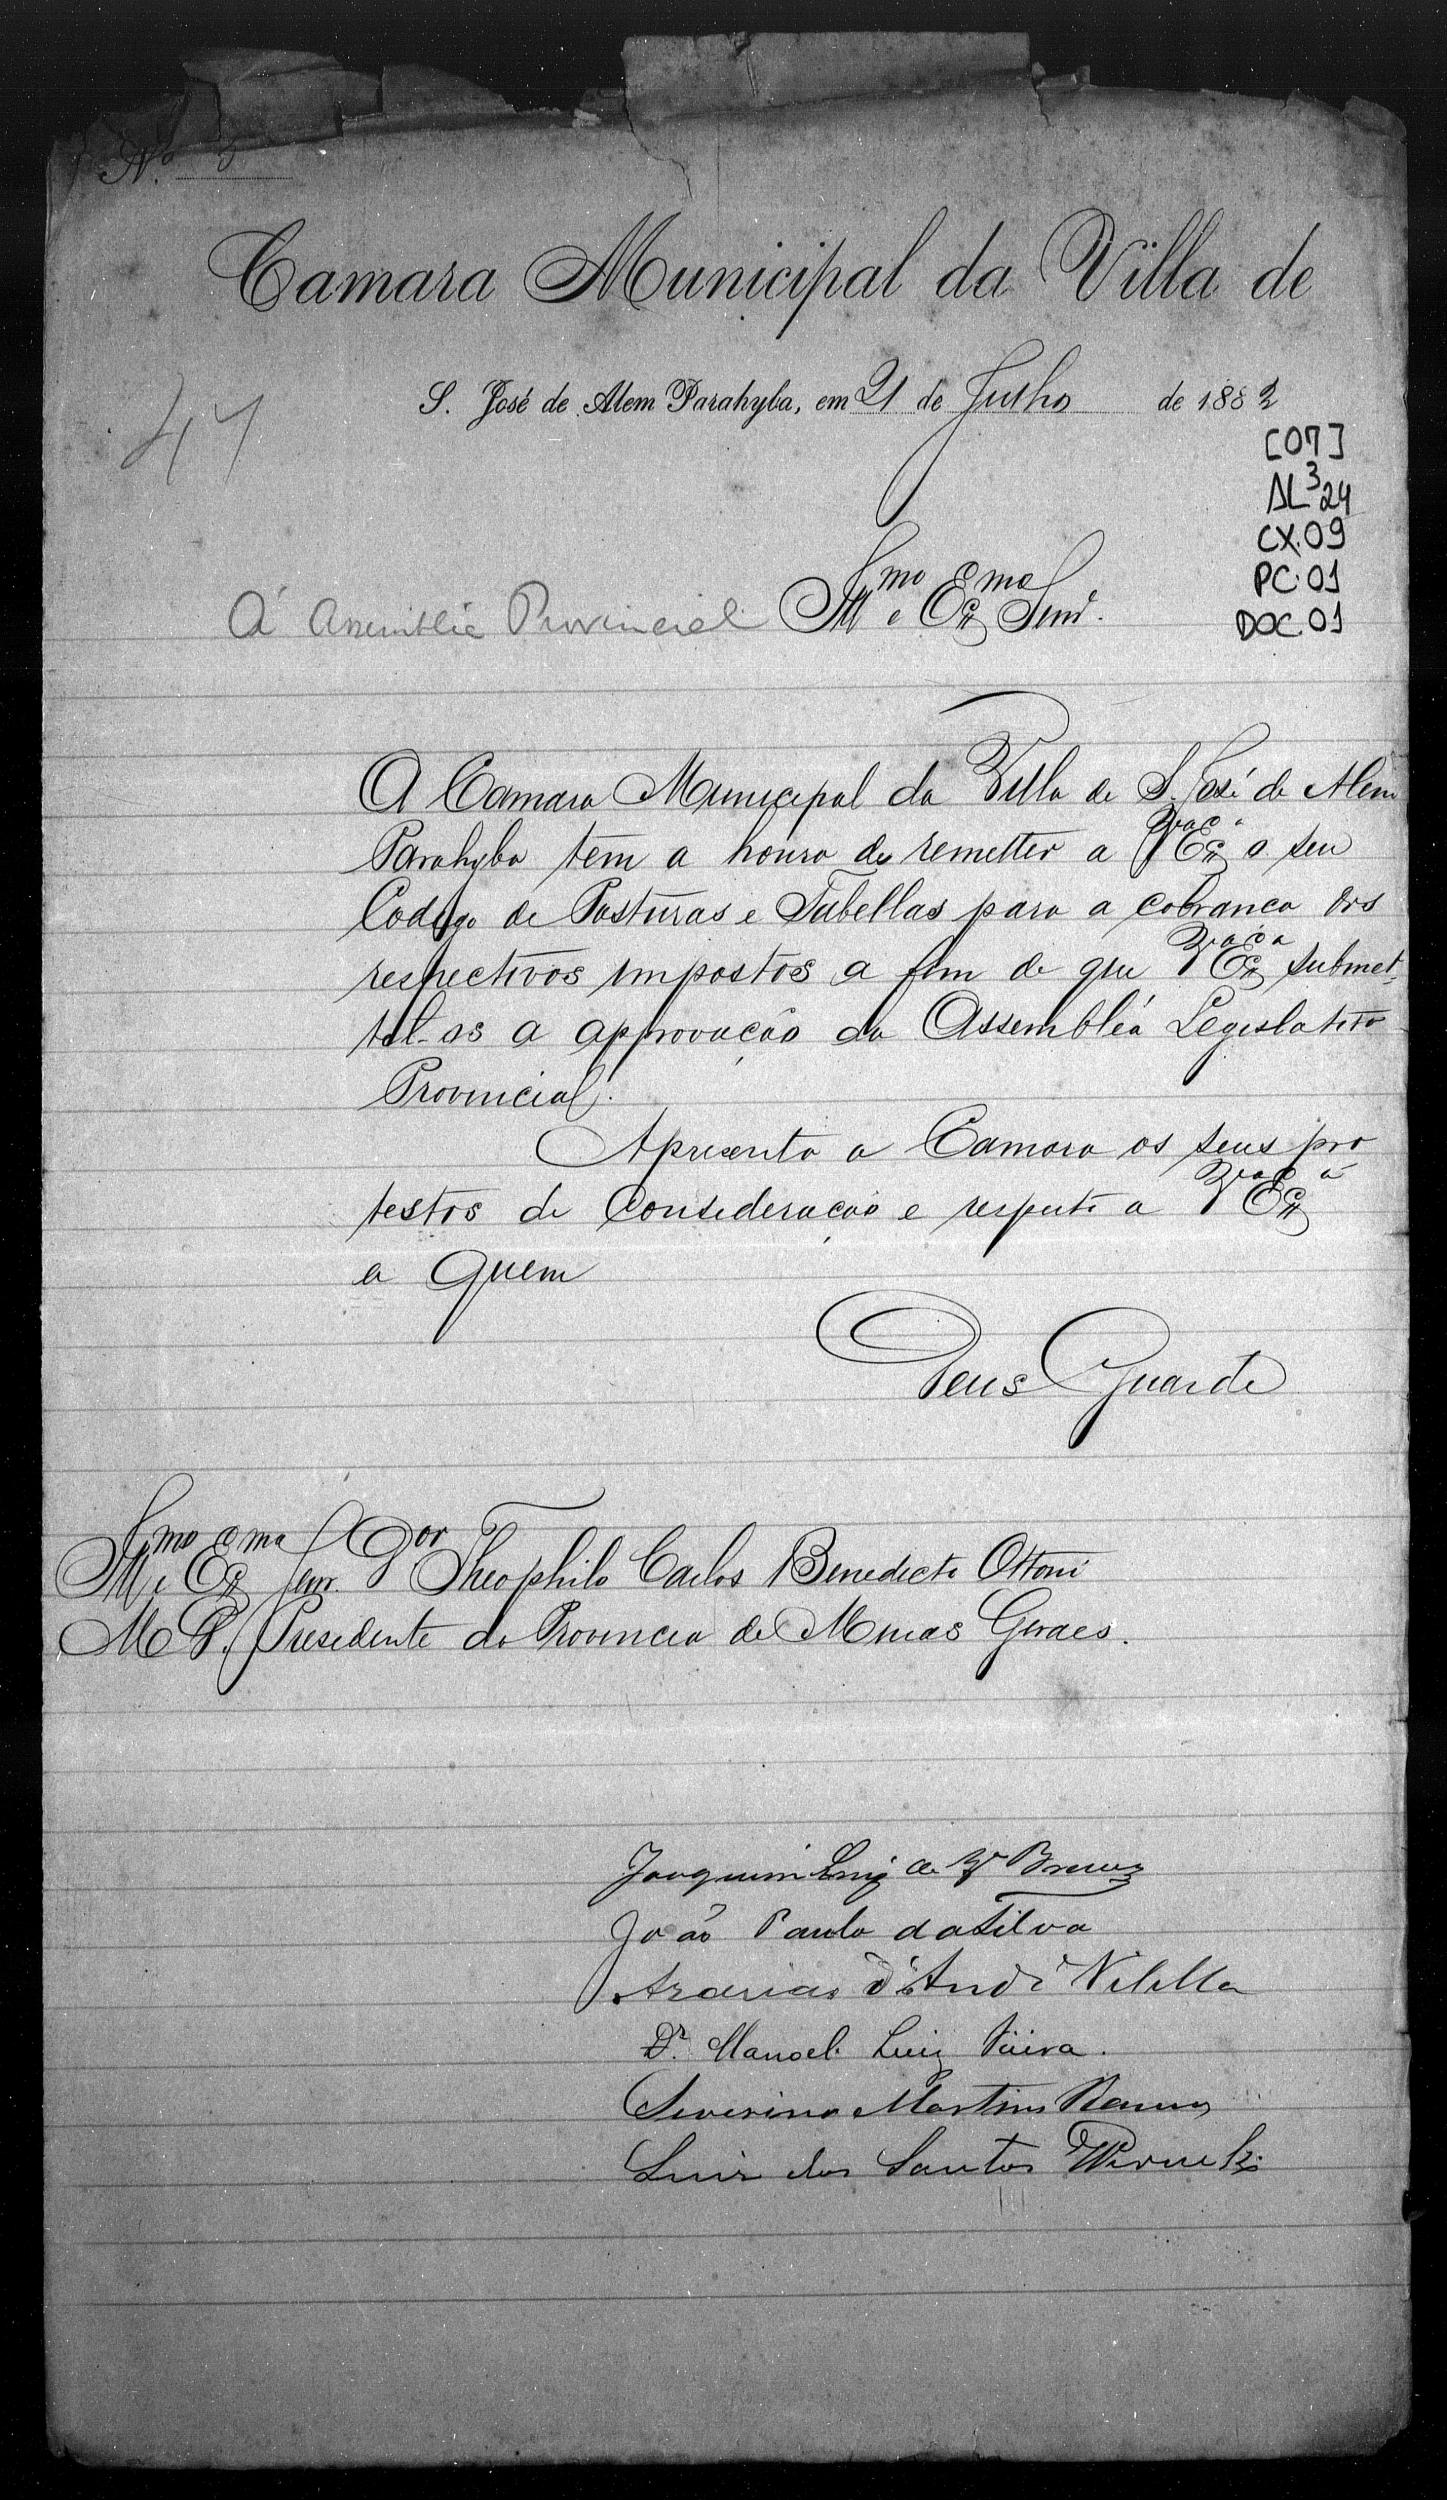 Nº 3
Camara Municipal da Villa de
S. José de Alem Parahyba, em 21 de Julho de 1882
47
[07]
AL³24
CX.09
PC.01
DOC.01
Á Assembléa Provincial Illmo e Exmo Senr.
A Camara Municipal da Villa de S. José de Alem
Parahyba tem a honra de remetter a Va Exca o seu
Codigo de Posturas e Tabellas para a cobrança dos
respectivos impostos a fim de que Va Exca submet-
tel-os a approvação da Assembléa Legislativa
Provincial.
Apresenta a Camara os seus pro
testos de Consideração e respeito a Va Exca
a quem
Deus Guarde
Illmo e Exmo Senr Dor Theophilo Carlos Benedicto Ottoni
M D. Presidente da Provincia de Minas Geraes.
Joaquim Luiz de
João Paulo da Silva
Azarias d'Andre Villela
Dr. Manoel Luiz Vieira.
Severino Martins Ramos
Luiz dos Santos Werneck